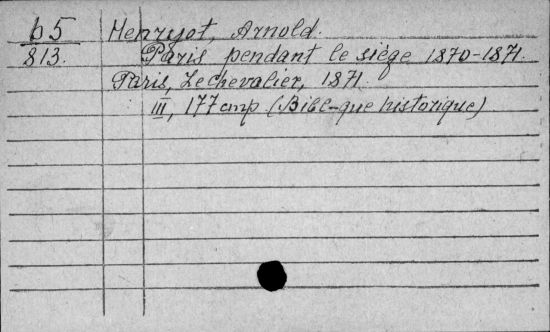 b5 Henryot, Arnold.
813. Paris pendant le siège 1870-1871.
Paris, Lechevalier, 1871.
III, 177 cmp (Bibl-que historique)